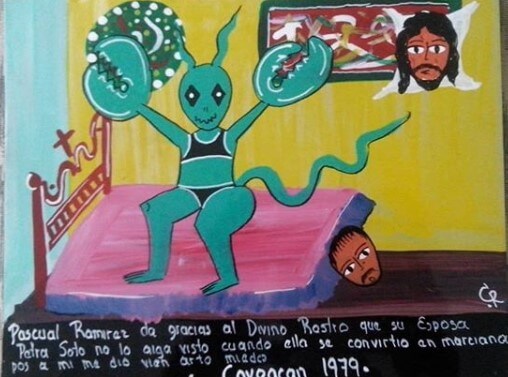 Pascual Ramirez da gracias al Divino Rostro que su Esposa
Petra Soto no lo aiga visto cuando ella se convirtio en marciana
pos a mi me dio vien arto miedo
Coyoacan 1979.
CR